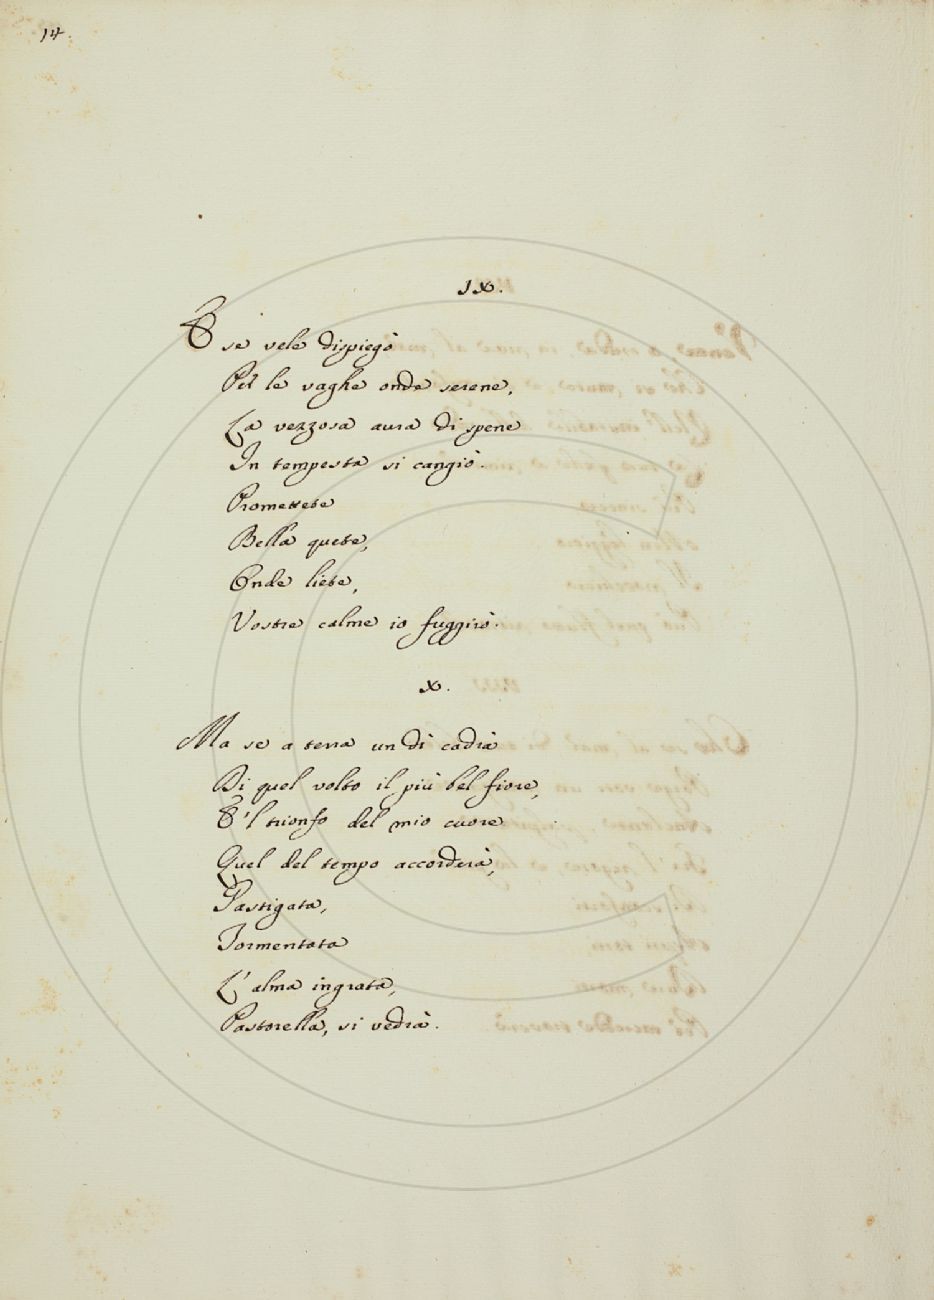 14.
IX.
E se vele dispiegò
Per le vaghe onde serene,
La vezzosa aura di spene
In tempesta si cangiò.
Promettete
Bella quete,
Onde liete,
Vostre calme io fuggirò.
X.
Ma se a terra un dì cadrà
Di quel volto il più bel fiore,
E 'l trionfo del mio cuore
Quel del tempo accorderà,
Castigata,
Tormentata
L' alma ingrata,
Pastorella, si vedrà.